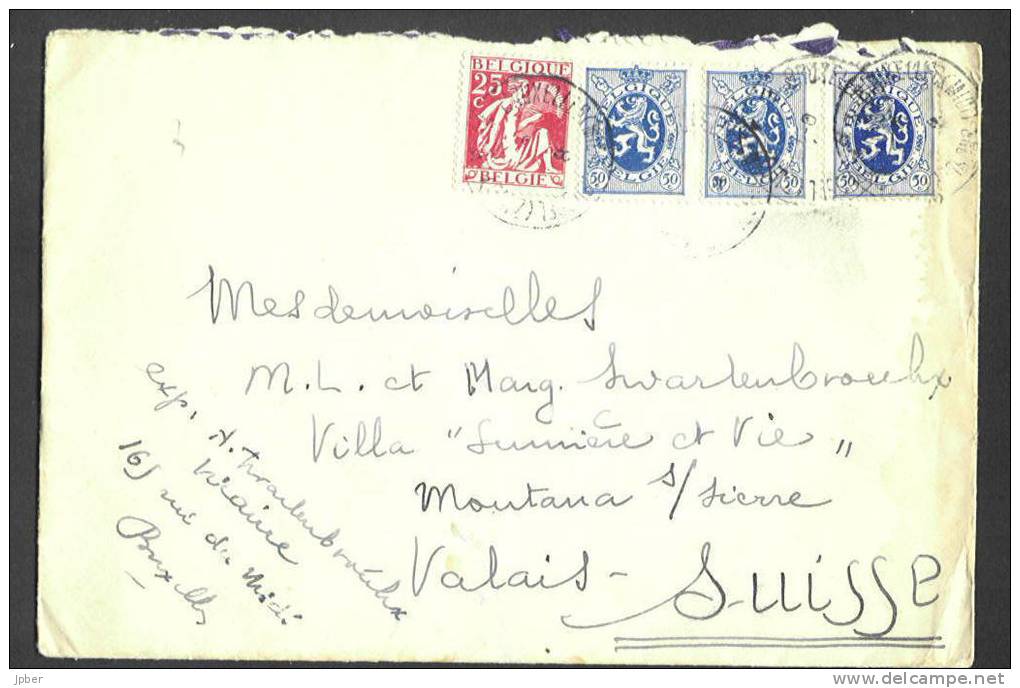 BELGIQUE
25 c
BELGIE
BELGIQUE
50 BELGIE 50
BELGIQUE
50 BELGIE 50
BELGIQUE
50 BELGIE 50
Mesdemoiselles
M. L. et Marg. Swartenbroeckx
Villa "Lumière et Vie"
Montana s/Sierre
Valais - SUISSE
exp. A. Swartenbroeckx
Vicaire
165 rue du Midi.
Bruxelles
jpber
www.delcampe.net